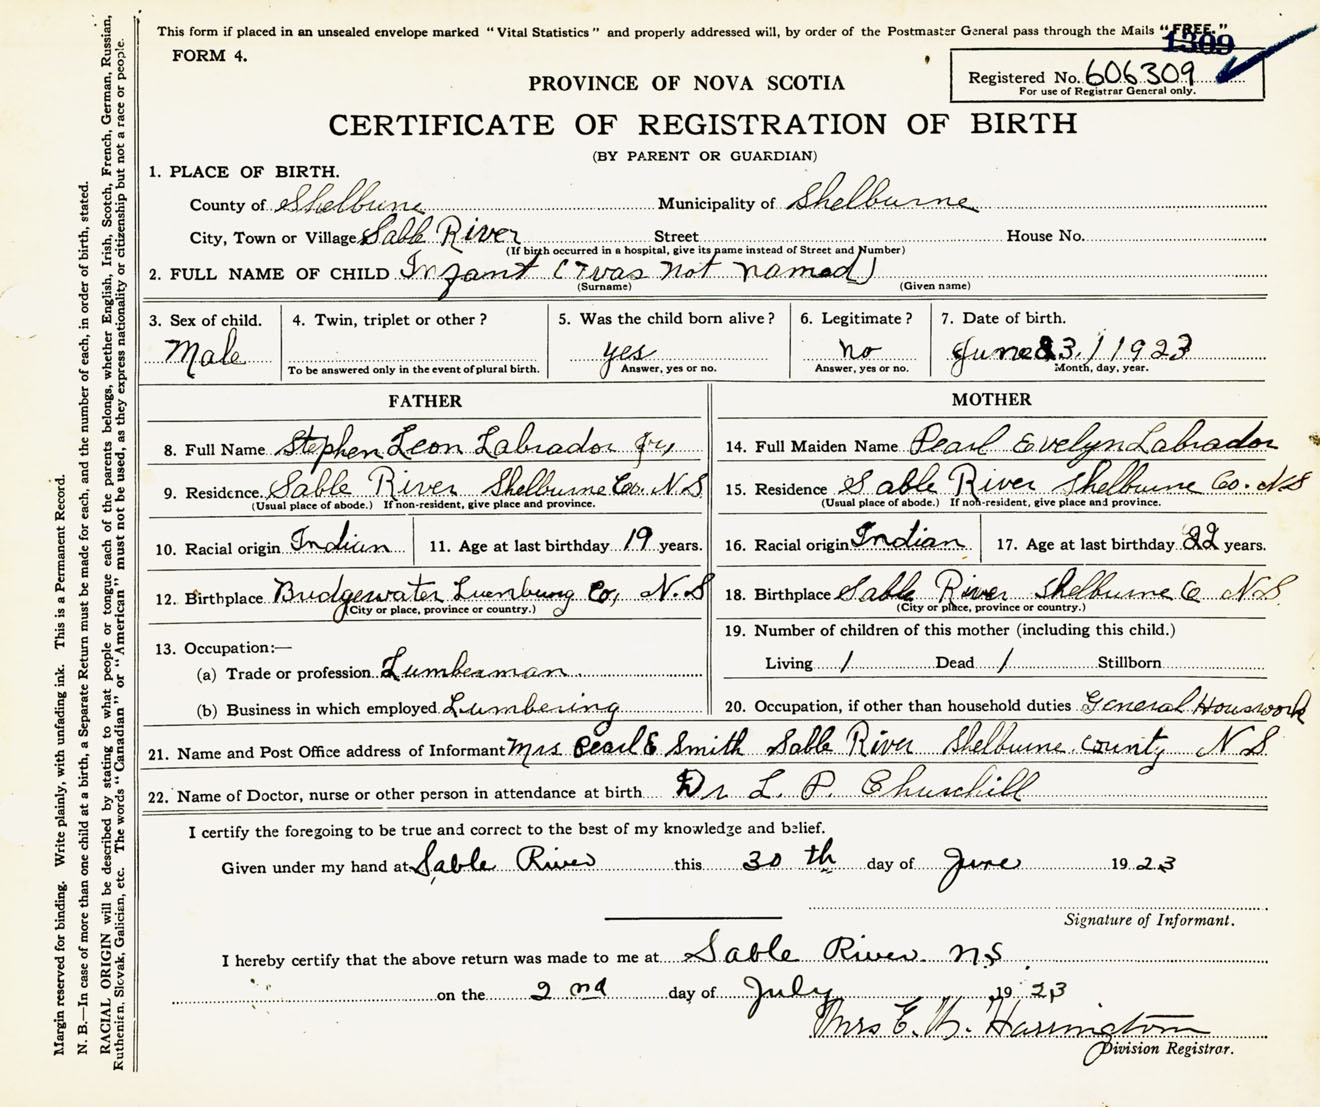 This form if placed in an unsealed envelope marked "Vital Statistics" and properly addressed will, by order of the Postmaster General pass through the Mails "FREE."
1309
FORM 4.
Registered No. 606309
For use of Registrar General only.
PROVINCE OF NOVA SCOTIA
CERTIFICATE OF REGISTRATION OF BIRTH
(BY PARENT OR GUARDIAN)
1. PLACE OF BIRTH.
County of Shelburne Municipality of Shelburne
City, Town or Village Sable River Street House No.
(If birth occurred in a hospital, give its name instead of Street and Number)
2. FULL NAME OF CHILD Infant (was not named)
(Surname) (Given name)
3. Sex of child. 4. Twin, triplet or other? 5. Was the child born alive? 6. Legitimate? 7. Date of birth.
Male yes no June 23, 1923
To be answered only in the event of plural birth. Answer, yes or no. Answer, yes or no. Month, day, year.
FATHER MOTHER
8. Full Name Stephen Leon Labrador Jr, 14. Full Maiden Name Pearl Evelyn Labrador
9. Residence. Sable River Shelburne Co. N.S 15. Residence Sable River Shelburne Co. N.S
(Usual place of abode.) If non-resident, give place and province. (Usual place of abode.) If non-resident, give place and province.
10. Racial origin Indian 11. Age at last birthday 19 years. 16. Racial origin Indian 17. Age at last birthday 22 years.
12. Birthplace Bridgewater Lunenburg Co, N.S 18. Birthplace Sable River Shelburne Co N.S.
(City or place, province or country.) (City or place, province or country.)
13. Occupation:— 19. Number of children of this mother (including this child.)
(a) Trade or profession Lumberman Living 1 Dead 1 Stillborn
(b) Business in which employed Lumbering 20. Occupation, if other than household duties General Houswork
21. Name and Post Office address of Informant Mrs Pearl E Smith Sable River Shelburne County N.S.
22. Name of Doctor, nurse or other person in attendance at birth Dr L. P. Churchill
I certify the foregoing to be true and correct to the best of my knowledge and belief.
Given under my hand at Sable River this 30 th day of June 1923
Signature of Informant.
I hereby certify that the above return was made to me at Sable River. N.S.
on the 2 nd day of July 1923
Mrs E. Harrington
Division Registrar.
Margin reserved for binding. Write plainly, with unfading ink. This is a Permanent Record.
N. B.—In case of more than one child at a birth, a Separate Return must be made for each, and the number of each, in order of birth, stated.
RACIAL ORIGIN will be described by stating to what people or tongue each of the parents belongs, whether English, Irish, Scotch, French, German, Russian,
Ruthenian, Slovak, Galician, etc. The words "Canadian" or "American" must not be used, as they express nationality or citizenship but not a race or people.